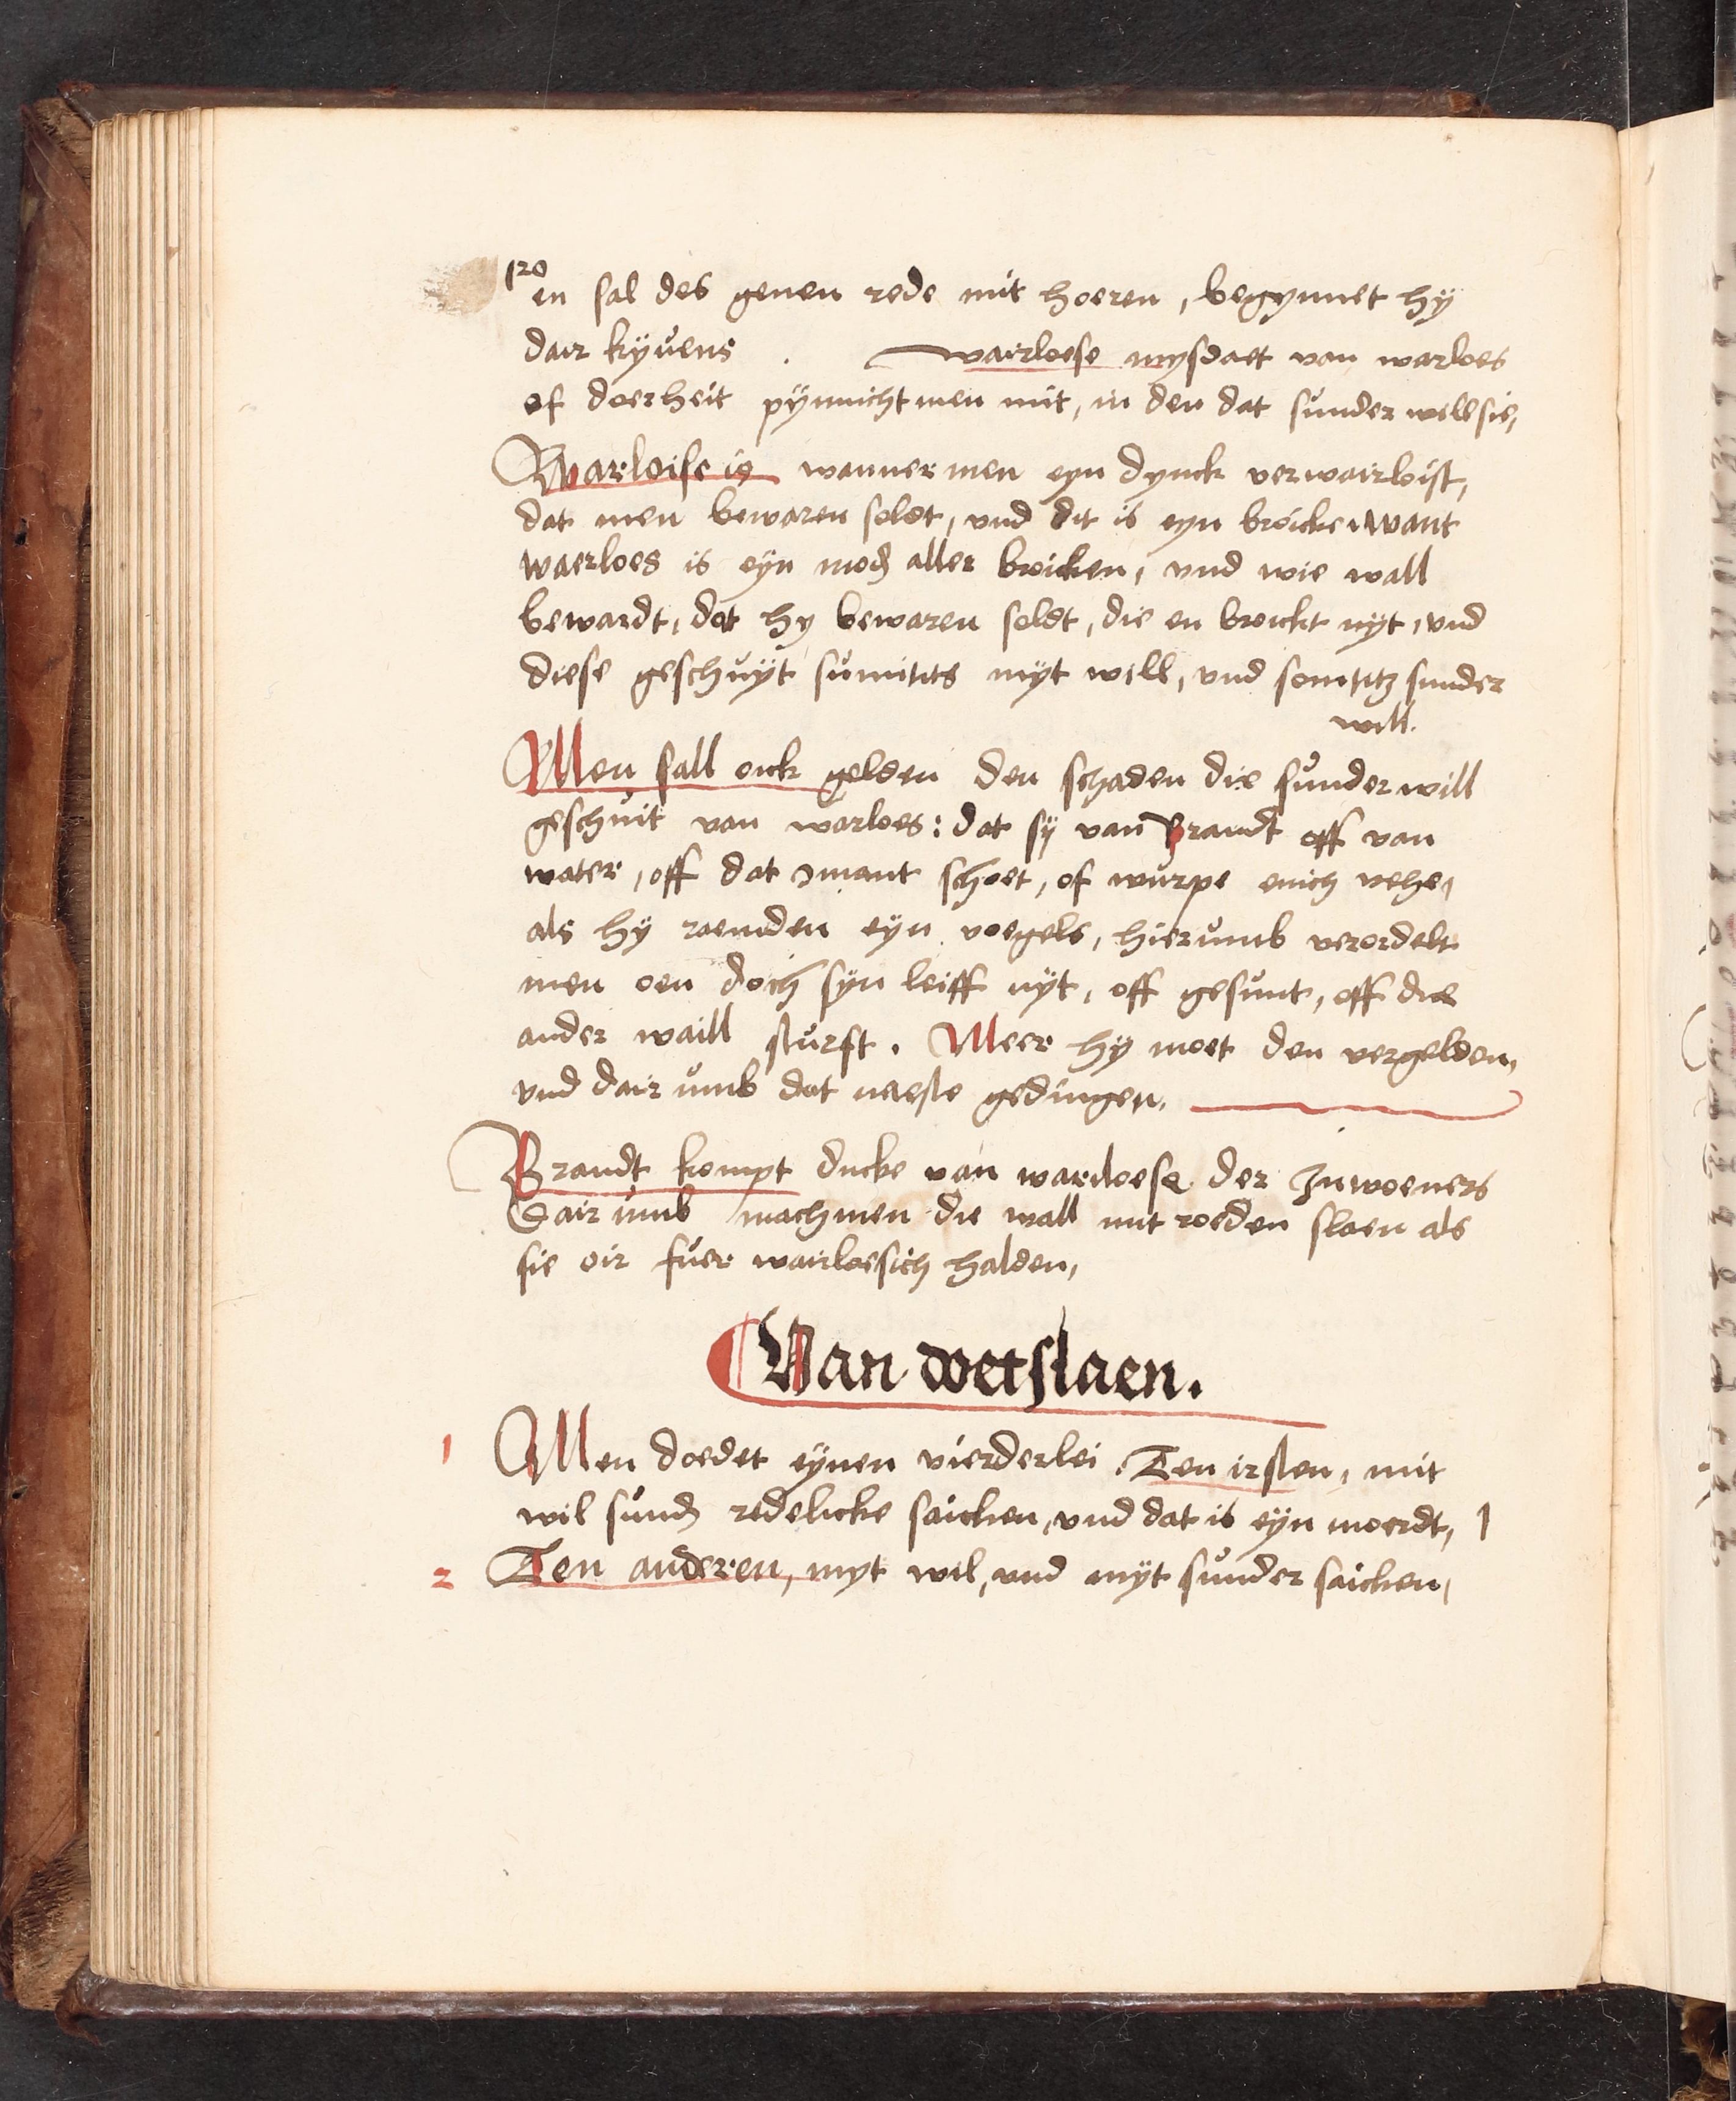 120
en sal des genen rede nit hoeren, begynnet hÿ
dair kÿvens . wairloese mysdaet van warloes
of doerheit pÿnnicht men nit, in den dat sunder will sie,
Warloise is wanner men eyn dynck verwairloist,
dat men bewaren soldt, vnd dit is eyn broicke, want
waerloes is eÿn mod aller broicken, vnd wie wall
bewardt, dat hy bewaren soldt, die en broickt nyt, vnd
diese geschuÿt sumitits mÿt will, vnd somtitz sunder
will.
Men sall oick gelden den schaden die sunder will
geschuit van warloes: dat sÿ van Brandt off van
water, off dat Imant schoet, of wurpe enich vehe,
als hÿ raemden eÿn voegels, hierumb verordelt
men oen doch sÿn leiff nÿt, off gesunt, off die
ander waill sturft. Meer hÿ moet den vergelden,
vnd dair umb dat neeste gedingen.
Brandt kompt ducke van warloese der Inwoeners
Dair umb mach men die wall mit roeden slaen als
sie oir fuer wairloesich halden,
Van doetslaen.
1 Men doedet eÿnen vierderlei. Ten irsten, mit
wil sund redelicke saicken, vnd dat is eÿn moerdt, 1
2 Ten anderen, myt wil, vnd nÿt sunder saicken,